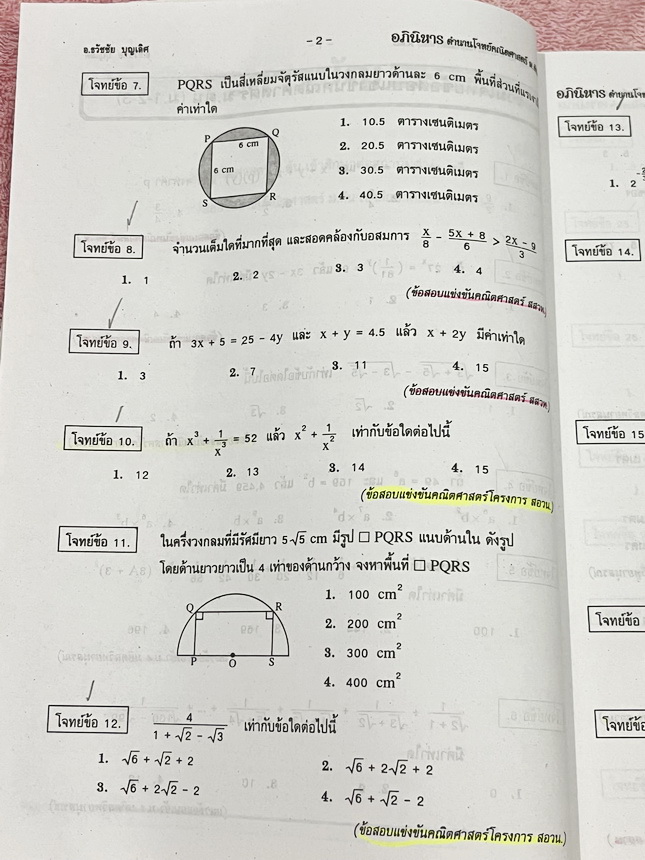 อ.ธวัชชัย บุญเลิศ
- 2 -
อภินิหาร ตำนานโจทย์คณิตศาสตร์
โจทย์ข้อ 7.
PQRS เป็นสี่เหลี่ยมจัตุรัสแนบในวงกลมยาวด้านละ 6 cm พื้นที่ส่วนที่แรเงา
ค่าเท่าใด
P Q
6 cm
6 cm
S R
1. 10.5 ตารางเซนติเมตร
2. 20.5 ตารางเซนติเมตร
3. 30.5 ตารางเซนติเมตร
4. 40.5 ตารางเซนติเมตร
โจทย์ข้อ 8.
จำนวนเต็มใดที่มากที่สุด และสอดคล้องกับอสมการ x/8 - (5x + 8)/6 > (2x - 9)/3
1. 1 2. 2 3. 3 4. 4
(ข้อสอบแข่งขันคณิตศาสตร์ สสวท.)
โจทย์ข้อ 9.
ถ้า 3x + 5 = 25 - 4y และ x + y = 4.5 แล้ว x + 2y มีค่าเท่าใด
1. 3 2. 7 3. 11 4. 15
(ข้อสอบแข่งขันคณิตศาสตร์ สสวท.)
โจทย์ข้อ 10.
ถ้า x³ + 1/x³ = 52 แล้ว x² + 1/x² เท่ากับข้อใดต่อไปนี้
1. 12 2. 13 3. 14 4. 15
(ข้อสอบแข่งขันคณิตศาสตร์โครงการ สอวน.)
โจทย์ข้อ 11.
ในครึ่งวงกลมที่มีรัศมียาว 5√5 cm มีรูป □ PQRS แนบด้านใน ดังรูป
โดยด้านยาวยาวเป็น 4 เท่าของด้านกว้าง จงหาพื้นที่ □ PQRS
Q R
P O S
1. 100 cm²
2. 200 cm²
3. 300 cm²
4. 400 cm²
โจทย์ข้อ 12.
4/(1 + √2 - √3) เท่ากับข้อใดต่อไปนี้
1. √6 + √2 + 2
2. √6 + 2√2 + 2
3. √6 + 2√2 - 2
4. √6 + √2 - 2
(ข้อสอบแข่งขันคณิตศาสตร์โครงการ สอวน.)
อภินิหาร
โจทย์ข้อ 13.
1. 2
โจทย์ข้อ 14.
โจทย์ข้อ 15
โจทย์ข้อ
โจทย์ข้อ